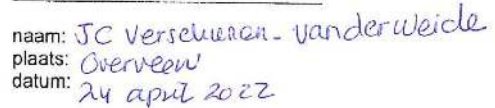 naam: JC Verschuren - van der Weide
plaats: Overveen
datum: 24 april 2022